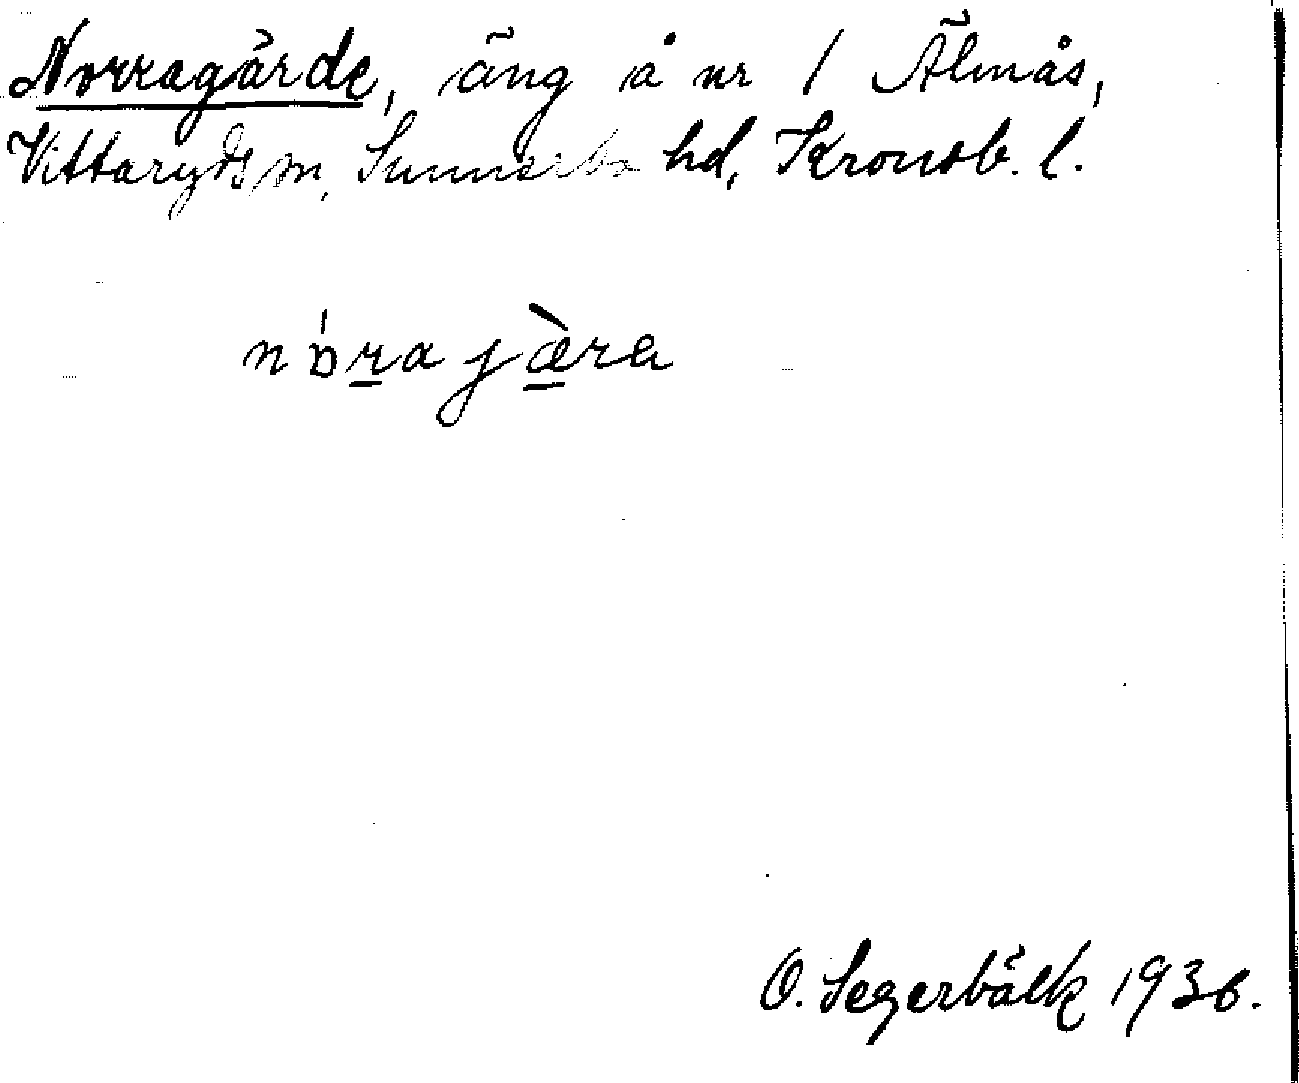 Norragärde, äng å nr 1 Älmås,
Vittaryds sn, Sunnerbo hd, Kronob. l.
nóra jæ̀ra
O. Segerbälk 1936.